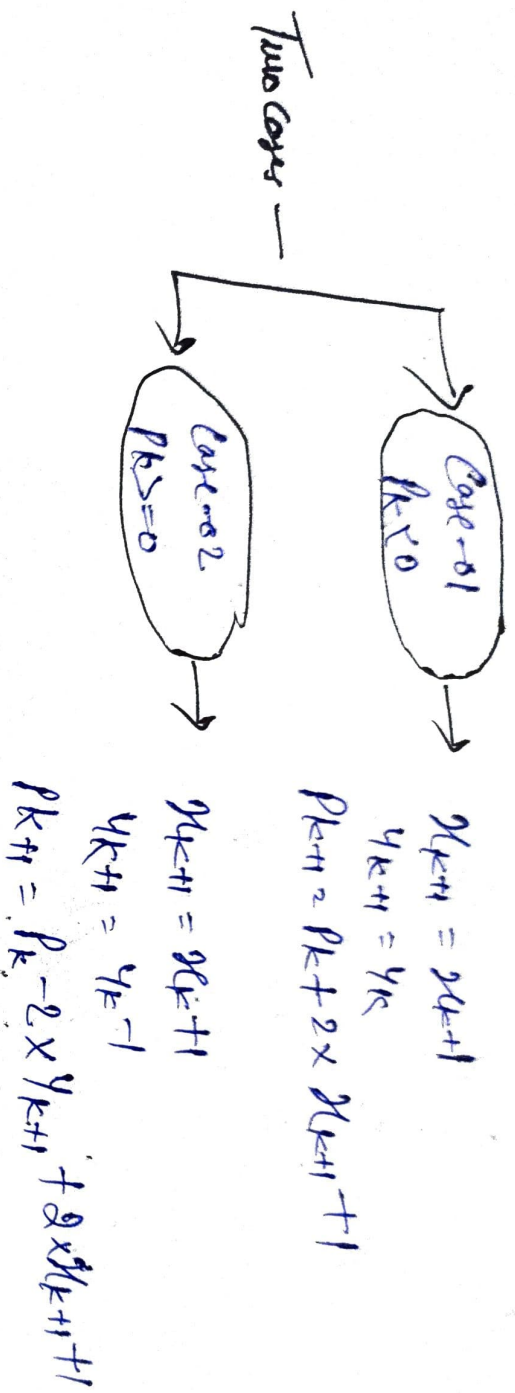 Two Cases —
Case-01
Pk < 0
xk+1 = xk+1
yk+1 = yk
Pk+1 = Pk + 2 x xk+1 + 1
Case-02
Pk >= 0
xk+1 = xk+1
yk+1 = yk-1
Pk+1 = Pk - 2 x yk+1 + 2 x xk+1 + 1